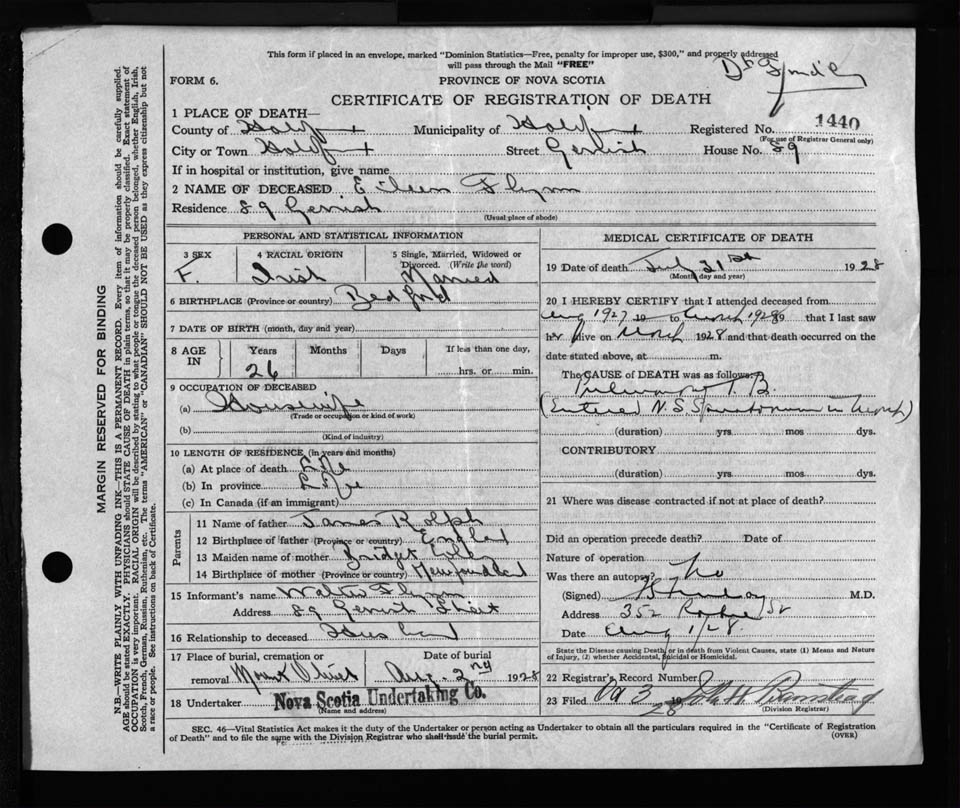 This form if placed in an envelope, marked "Dominion Statistics—Free, penalty for improper use, $300," and properly addressed
will pass through the Mail "FREE"
FORM 6.
PROVINCE OF NOVA SCOTIA
CERTIFICATE OF REGISTRATION OF DEATH
1 PLACE OF DEATH—
County of Halifax Municipality of Halifax Registered No. 1440
(For use of Registrar General only)
City or Town Halifax Street Gerrish House No. 89
If in hospital or institution, give name
2 NAME OF DECEASED Eileen Flynn
Residence 89 Gerrish
(Usual place of abode)
PERSONAL AND STATISTICAL INFORMATION
3 SEX 4 RACIAL ORIGIN 5 Single, Married, Widowed or
Divorced. (Write the word)
F. Irish Married
6 BIRTHPLACE (Province or country) Bedford
7 DATE OF BIRTH (month, day and year)
8 AGE IN Years Months Days If less than one day,
26 hrs. or min.
9 OCCUPATION OF DECEASED
(a) Housewife
(Trade or occupation or kind of work)
(b)
(Kind of industry)
10 LENGTH OF RESIDENCE (in years and months)
(a) At place of death Life
(b) In province Life
(c) In Canada (if an immigrant)
Parents
11 Name of father James Rolph
12 Birthplace of father (Province or country) England
13 Maiden name of mother Bridget
14 Birthplace of mother (Province or country) Newfoundland
15 Informant's name Walter Flynn
Address 89 Gerrish Street
16 Relationship to deceased Husband
17 Place of burial, cremation or Date of burial
removal Mount Olivet Aug. 2nd 1928
18 Undertaker Nova Scotia Undertaking Co.
(Name and address)
MEDICAL CERTIFICATE OF DEATH
19 Date of death July 31st 1928
(Month, day and year)
20 I HEREBY CERTIFY that I attended deceased from
Aug 1927 19 to March 1928 19 that I last saw
her alive on March 1928 and that death occurred on
date stated above, at m.
The CAUSE OF DEATH was as follows:
Pulmonary T.B.
(Entered N.S Sanatorium in March)
(duration) yrs mos dys.
CONTRIBUTORY
(duration) yrs. mos dys.
21 Where was disease contracted if not at place of death?
Did an operation precede death? Date of
Nature of operation
Was there an autopsy? No
(Signed) M.D.
Address 352 St
Date Aug 1/28.
State the Disease causing Death, or in death from Violent Causes, state (1) Means and Nature
of Injury, (2) whether Accidental, Suicidal or Homicidal.
22 Registrar's Record Number
23 Filed 3 1928
(Division Registrar)
SEC. 46—Vital Statistics Act makes it the duty of the Undertaker or person acting as Undertaker to obtain all the particulars required in the "Certificate of Registration
of Death" and to file the same with the Division Registrar who shall issue the burial permit.
(OVER)
MARGIN RESERVED FOR BINDING
N.B.—WRITE PLAINLY WITH UNFADING INK—THIS IS A PERMANENT RECORD. Every item of information should be carefully supplied.
AGE should be stated EXACTLY. PHYSICIANS should STATE CAUSE OF DEATH in plain terms, so that it may be properly classified. Exact statement of
OCCUPATION is very important. RACIAL ORIGIN will be described by stating to what people or tongue the deceased person belonged, whether English, Irish,
Scotch, French, German, Russian, Ruthenian, etc. The terms "AMERICAN" or "CANADIAN" SHOULD NOT BE USED as they express citizenship but not
a race or people. See instructions on back of Certificate.